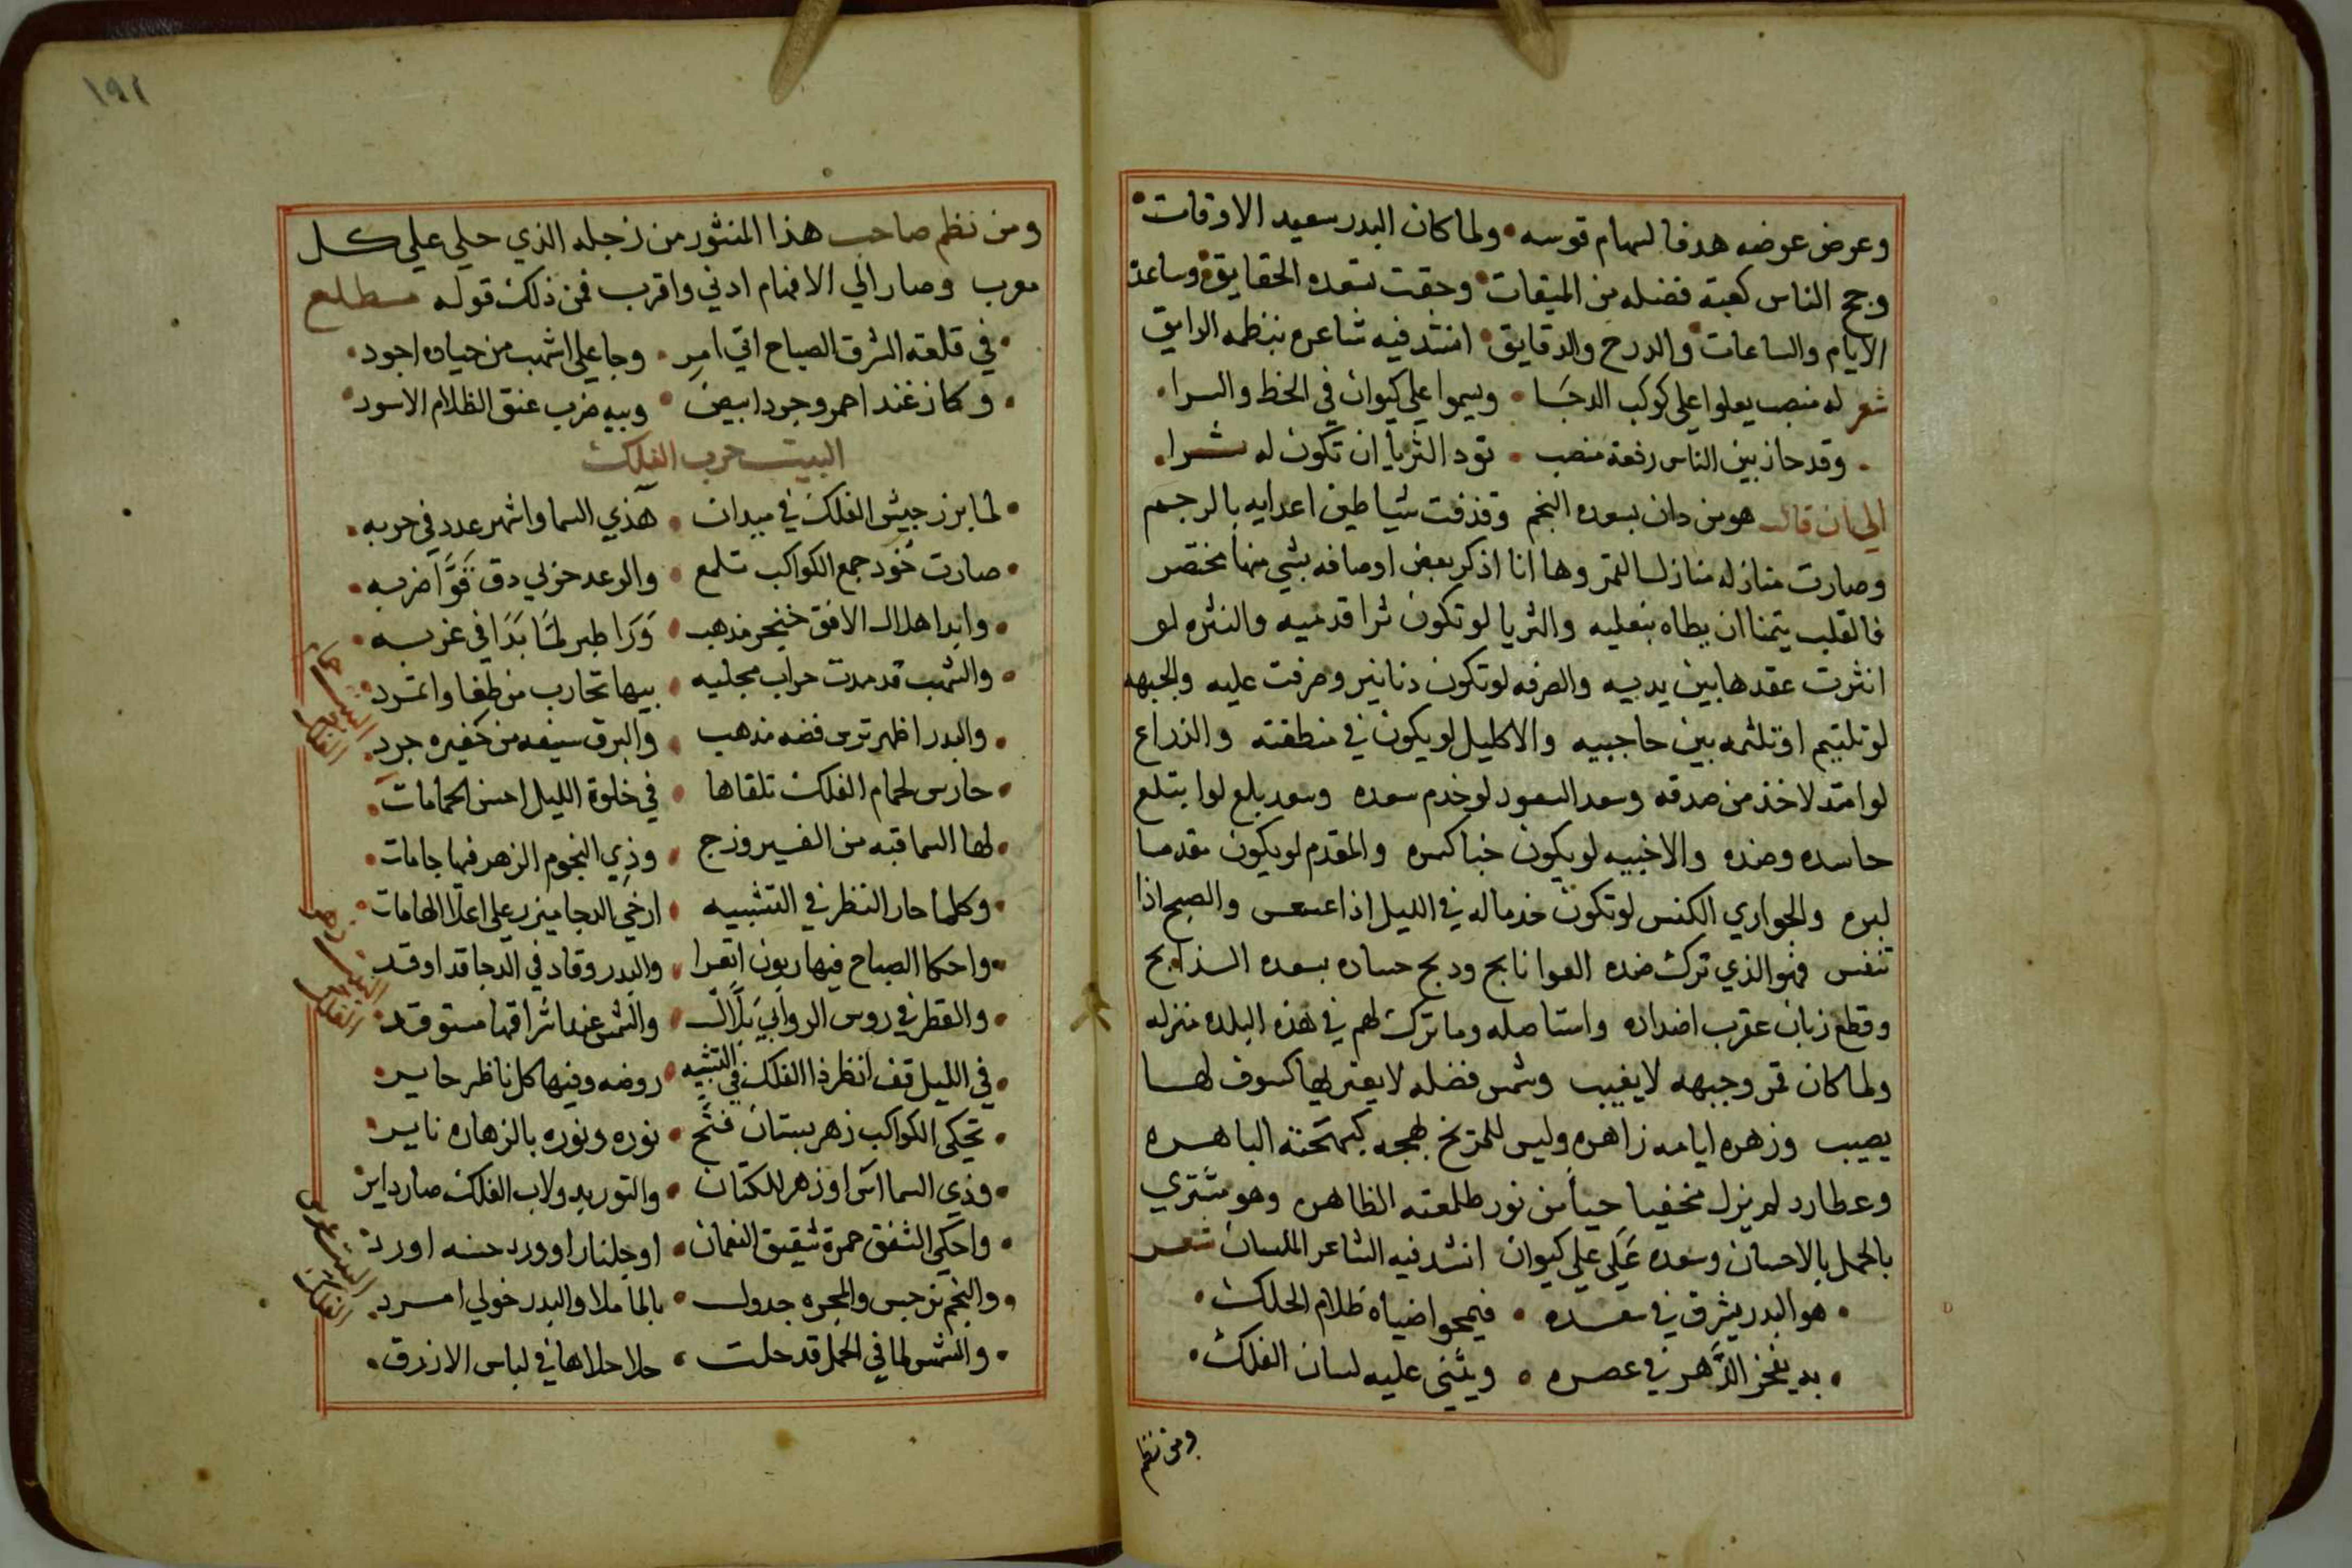 وعرض عرضه هدفا لسهام قوسه • ولما كان البدر سعيد الاوقات •
وحج الناس كعبة فضله من الميقات • وحقت بسعده الحقايق • وساعدة
الايام والساعات • والدرج والدقايق • انشد فيه شاعره بنظمه الرايق
شعر له منصب يعلوا علي كوكب الدجا • ويسموا علي كيوان في الخط والسرا •
• وقد حاز بين الناس رفعة منصب • تود الثريا ان تكون له شرا •
الي ان قال هو من دان بسعده النجم وقذفت شياطين اعدايه بالرجم
وصارت منازله منازل القمر وها انا اذكر بعض اوصافه بشي منها مختصر
فالقلب يتمنا ان يطاه بنعليه والثريا لو تكون ثرا قدميه والنثره لو
انثرت عقدها بين يديه والصرفه لو تكون دنانير وصرفت عليه والجبهه
لو تلتيم او تلثمه بين حاجبيه والاكليل لو يكون في منطقته والذراع
لو امتد لاخذ من صدقه وسعد السعود لو خدم سعده وسعد بلع لو ابتلع
حاسده وضده والاخبيه لو يكون خبا كبره والمقدم لو يكون مقدما
لبره والجواري الكنس لو تكون خدما له في الليل اذا عسعس والصبح اذا
تنفس فهو الذي ترك ضده العوا نابح ودبح حساده بسعده الذابح
وقطع زبان عقرب اضداده واستاصله وما ترك لهم في هذه البلده منزله
ولما كان قمر وجبهه لا يغيب وشمس فضله لا يعتريها كسوف لها
يصيب وزهره ايامه زاهره وليس للمريخ لهجه كبهجته الباهره
وعطارد لم يزل مخفيا حيأ من نور طلعته الظاهره وهو مشتري
بالحمل بالاحسان وسعده عَلَي علي كيوان انشد فيه الشاعر الملسان شعر
• هو البدر يشرق في سعده • فيمحوا ضياه ظلام الحلك •
• بديفخر الدَّهر في عصره • ويثني عليه لسان الفلك •
ومن نظم
١٩٢
ومن نظم صاحب هذا المنثور من زجله الذي حلي علي كل
معرب وصار الي الافهام ادني واقرب فمن ذلك قوله مطلع
• في قلعة الشرق الصباح اتي امر • وجا علي اشهب من جياده اجود •
• وكاز غند احمر وجرد ابيض • وبيه ضرب عنق الظلام الاسود •
البيت حرب الفلك
• لما برز جيش الفلك في ميدان • هذي السما واشهر عدد في حربه •
• صارت خود جمع الكواكب تلمع • والرعد حربي دق قوَّا ضربه •
• وابدا هلال الافق خنجر مذهب • وَرَا طبر لمَا بَدَا في غربه •
• والشهب قد مدت حراب مجليه • بيها تحارب من طغا واتمرد •
• والبدر اظهر ترس فضه مذهب • والبرق سيفه من خفيره جرد •
• حارس لحمام الفلك تلقاها • في خلوة الليل احسن الحمامات •
• لها السما قبه من الفيروزج • وذي النجوم الزهر فيها جامات •
• وكلما حار النظر في التشبيه • ارخي الدجا ميزر علي اعلا الهامات •
• واحكا الصباح فيها ربون اتعرا • والبدر وقاد في الدجا قد اوقد •
• والقطر في روس الروابي بلاّل • والشمس عند اشراقها مستوقد •
• في الليل قف انظر ذا الفلك في التشبيه • روضه وفيها كل ناظر حاير •
• تحكي الكواكب زهر بستان فتح • نوره ونوره بالزهاره ناير •
• وذي السما اس او زهر للكتان • والثور بدولاب الفلك صار داير •
• واحكي الشفق حمرة شقيق النعمان • او جلنار او ورد حسنه اورد •
• والنجم نرجس والمجره جدول • بالما ملا والبدر خولي امرد •
• والشمس لما في الحمل قد حلت • حلا حلاها في لباس الازرق •
حمام
الفلك
الفلك
الفلك